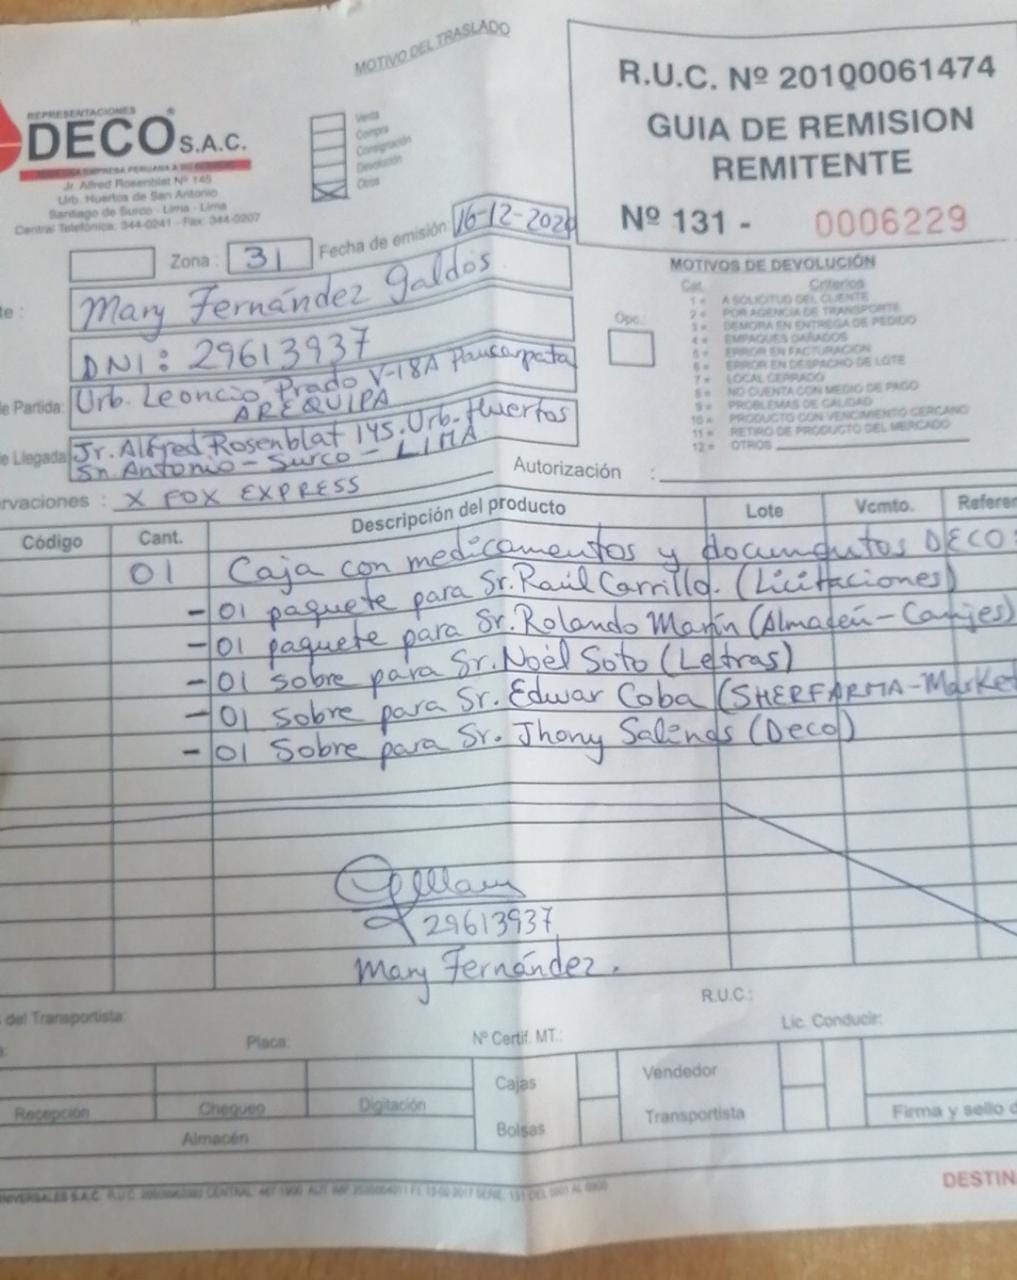 MOTIVO DEL TRASLADO
REPRESENTACIONES
DECO S.A.C.
Jr. Alfred Rosenblat Nº 145
Urb. Huertos de San Antonio
Santiago de Surco - Lima - Lima
Central Telefónica: 344-0241 - Fax: 344-0207
Venta
Compra
Consignación
Devolución
Otros
R.U.C. Nº 20100061474
GUIA DE REMISION
REMITENTE
Nº 131 - 0006229
Zona : 31 Fecha de emisión 16-12-2020
te : Mary Fernández Galdos
DNI: 29613937
de Partida: Urb. Leoncio Prado V-18A Paucarpata
AREQUIPA
de Llegada: Jr. Alfred Rosenblat 145. Urb. Huertos
Sn. Antonio - Surco - LIMA
MOTIVOS DE DEVOLUCIÓN
Opc.:
Cat. Criterios
1 = A SOLICITUD DEL CLIENTE
2 = POR AGENCIA DE TRANSPORTE
3 = DEMORA EN ENTREGA DE PEDIDO
4 = EMPAQUES DAÑADOS
5 = ERROR EN FACTURACION
6 = ERROR EN DESPACHO DE LOTE
7 = LOCAL CERRADO
8 = NO CUENTA CON MEDIO DE PAGO
9 = PROBLEMAS DE CALIDAD
10 = PRODUCTO CON VENCIMIENTO CERCANO
11 = RETIRO DE PRODUCTO DEL MERCADO
12 = OTROS
Autorización :
rvaciones : X FOX EXPRESS
Código Cant. Descripción del producto Lote Vcmto. Referen
01 Caja con medicamentos y documentos DECO:
- 01 paquete para Sr. Raúl Carrillo. (Licitaciones)
- 01 paquete para Sr. Rolando Marín (Almacén - Canjes)
- 01 sobre para Sr. Noél Soto (Letras)
- 01 sobre para Sr. Edwar Coba (SHERFARMA - Market
- 01 Sobre para Sr. Jhony Salends (Deco)
29613937
Mary Fernández.
R.U.C.:
del Transportista:
Placa: Nº Certif. MT.: Lic. Conducir:
Recepción Chequeo Digitación
Almacén
Cajas
Bolsas
Vendedor
Transportista
Firma y sello d
DESTIN